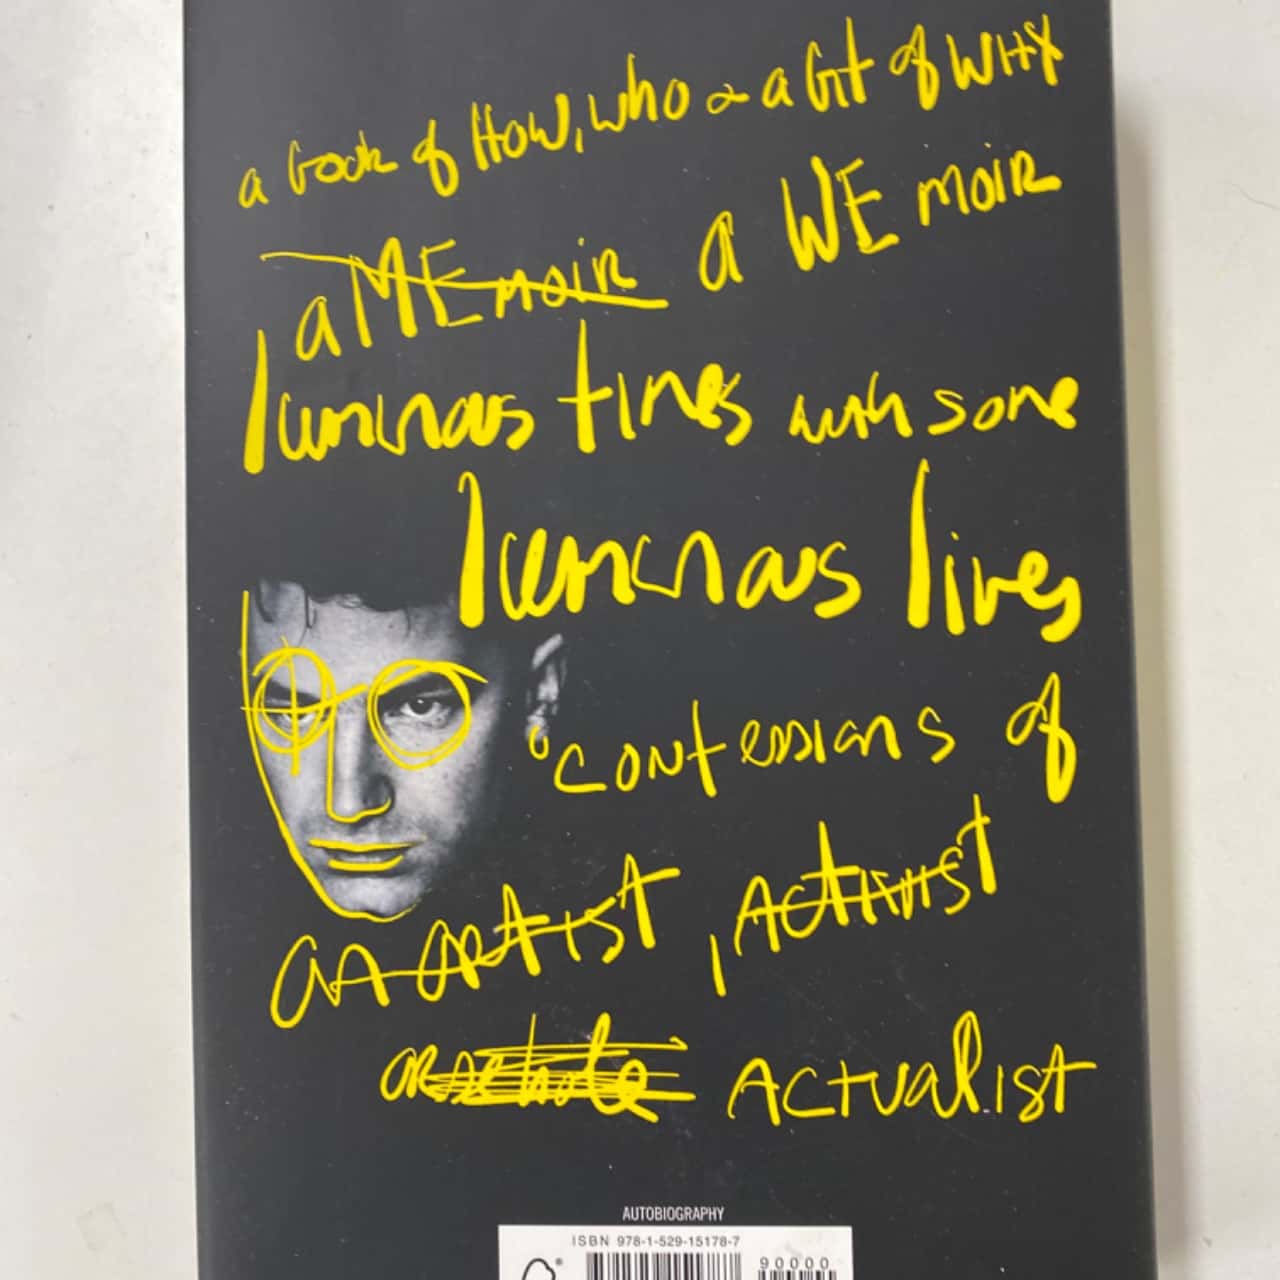 a book of HOW, who & a bit of WHY
a MEmoir a WEmoir
luminous times with some
luminous lives
confessions of
an artist, ACTIVIST
arsehole ACTUALIST
AUTOBIOGRAPHY
ISBN 978-1-529-15178-7
90000